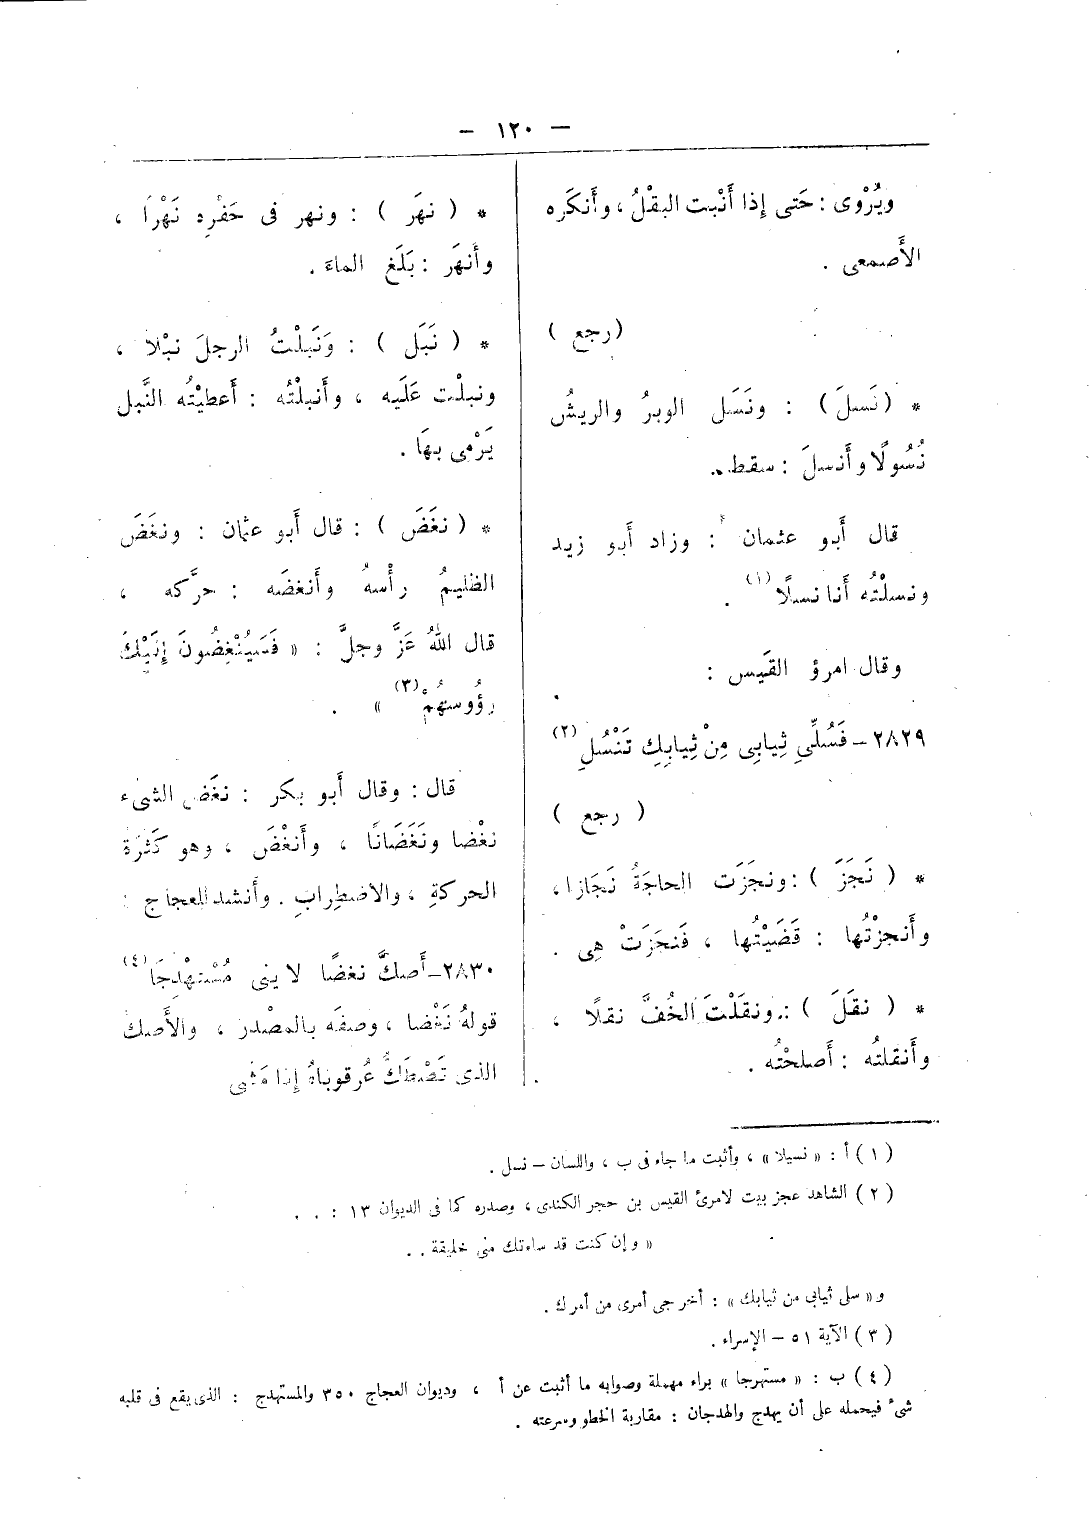 — ١٢٠ —
ويُرْوى : حَتى إذا أَنْبت البقْلُ ، وأَنكَره
الأَصمعى .
(رجع )
* (نَسلَ) : ونَسَل الوبرُ والريشُ
نُسُولًا وأَنسلَ : سقط .
قال أَبو عثمان : وزاد أَبو زيد
ونسلْتُه أَنا نسلًا (١) .
وقال امرؤ القَيس :
٢٨٢٩ – فَسُلِّى ثِيابِى مِنْ ثِيابِكِ تَنْسُلِ (٢)
( رجع )
* ( نَجَزَ ) : ونجَزَت الحاجَةُ نَجَازا ،
وأَنجزْتُها : قَضَيْتُها ، فَنجَزَتْ هِى .
* ( نقَلَ ) : ونقَلْتَ الخُفَّ نقلًا ،
وأَنقلتُه : أَصلحْتُه .
* ( نهَر ) : ونهر فى حَفْرِه نَهْرًا ،
وأَنهَر : بَلَغ الماءَ .
* ( نَبَل ) : وَنَبلْتُ الرجلَ نبْلا ،
ونبلْت عَلَيه ، وأَنبلْتُه : أَعطيْتُه النَّبل
يَرْمى بهَا .
* ( نغَضَ ) : قال أَبو عثمان : ونغَضَ
الظليمُ رأْسهُ وأَنغضَه : حرَّكه ،
قال اللهُ عَزَّ وجلَّ : « فَسَيُنْغِضُونَ إِلَيْكَ
رؤُوسَهُمْ (٣) » .
قال : وقال أَبو بكر : نغَض الشىء
نغْضا ونَغَضَانًا ، وأَنغْضَ ، وهو كَثرَة
الحركةِ ، والاضطِرابِ . وأَنشد للعجاج :
٢٨٣٠– أَصكَّ نغضًا لا ينى مُسْتهْدِجَا (٤)
قولهُ نَغْضا ، وصفَه بالمصْدر ، والأَصك
الذى تَصْطَكُّ عُرقوباهُ إذا مَشى
( ١ ) أ : « نسيلا » ، وأثبت ما جاء فى ب ، واللسان – نسل .
( ٢ ) الشاهد عجز بيت لامرئ القيس بن حجر الكندى ، وصدره كما فى الديوان ١٣ : . .
« وإن كنت قد ساءتك منى خليقة . .
و « سلى ثيابى من ثيابك » : أخرجى أمرى من أمرك .
( ٣ ) الآية ٥١ – الإسراء .
( ٤ ) ب : « مستهرجا » براء مهملة وصوابه ما أثبت عن أ ، وديوان العجاج ٣٥٠ والمستهدج : الذى يقع فى قلبه
شىء فيحمله على أن يهدج والهدجان : مقاربة الخطو وسرعته .